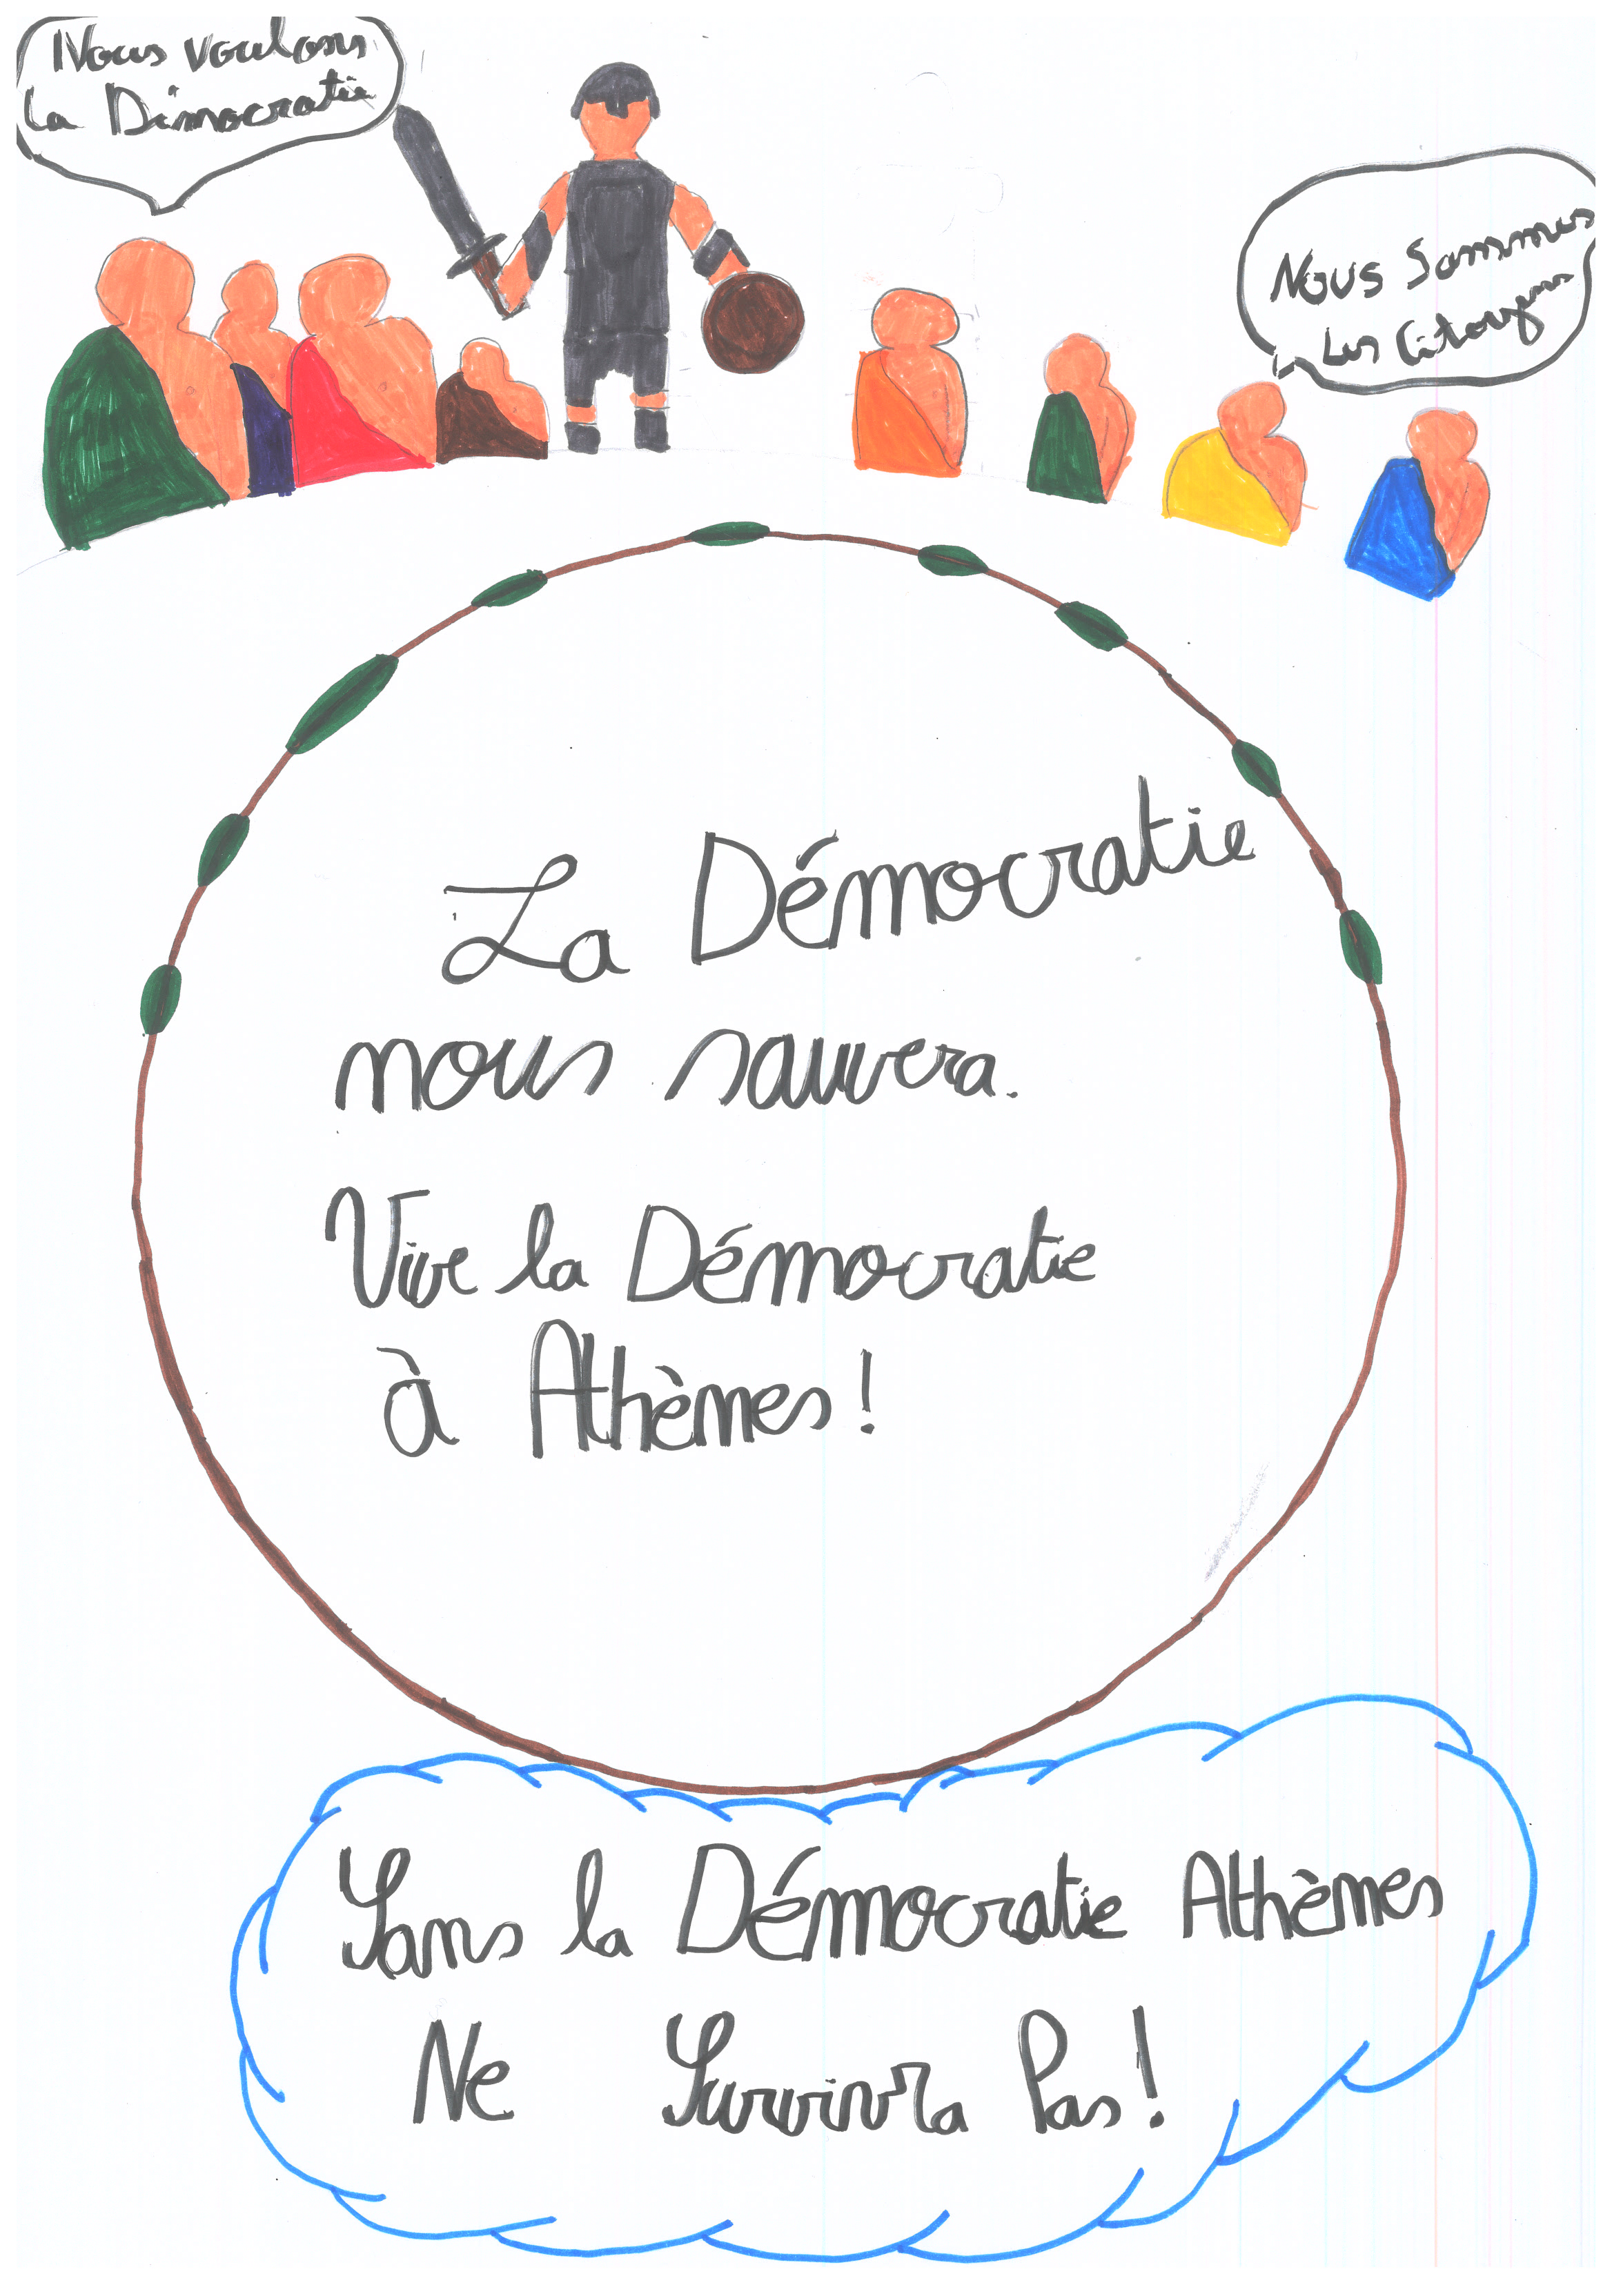 Nous voulons
la Démocratie
Nous Sommes
Les Citoyens
La Démocratie
nous sauvera.
Vive la Démocratie
à Athènes !
Sans la Démocratie Athènes
Ne Survivra Pas !